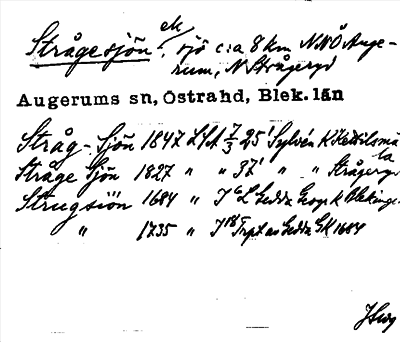 Strågesjön ek, sjö c:a 8 km NNÖ Auge-
rum, N Strågeryd
Augerums sn, Östrahd, Blek. län
Stråg-Sjön 1847 LSA 7/3 25' Sylvén K Kettilsmå
la
Stråge Sjön 1827 " " 37' " " Strågeryd
Strugsiön 1684 " J L Gedda Geogr K Blekinge
" 1735 " J 18 Trpt av Gedda GK 1684